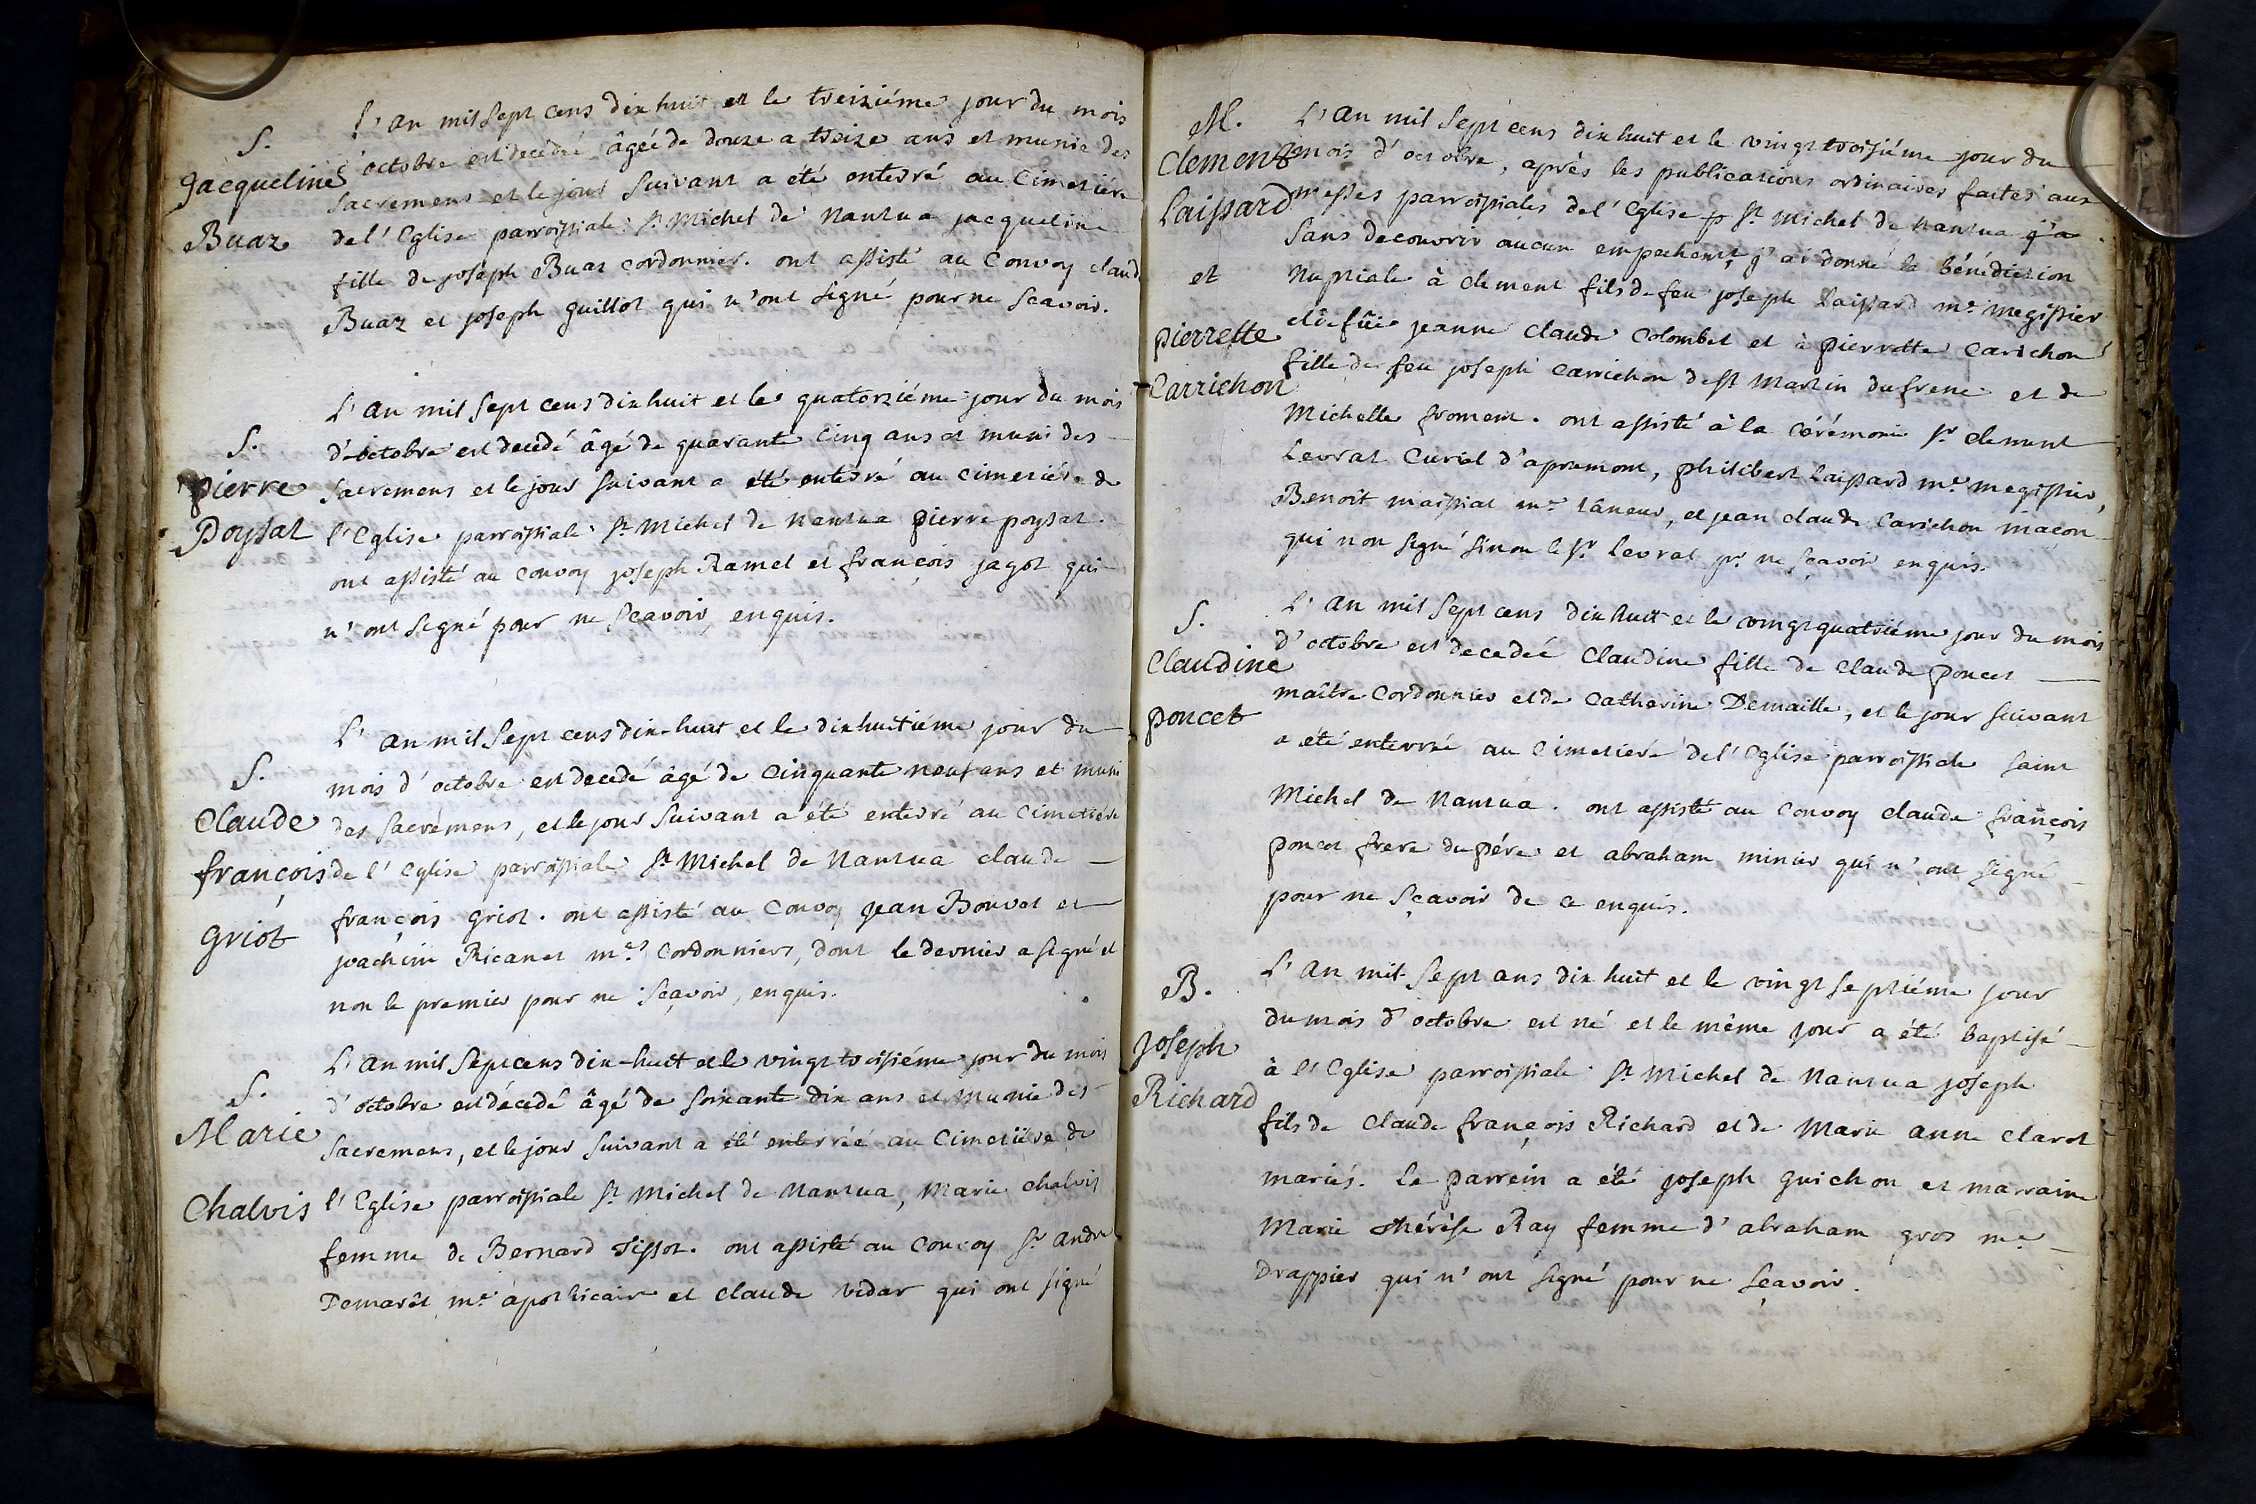 S.
Jacqueline
Buaz
L'an mil sept cens dix huit et le treiziéme jour du mois
d'octobre est decedée âgée de douze a treize ans et munie des
sacremens et le jour suivant a été enterré au Cimetiére
de l'Eglise parroissiale St Michel de Nantua jacqueline
fille de joseph Buaz cordonnier. ont assisté au Convoy claud
Buaz et joseph guillot qui n'ont signé pour ne scavoir.
S.
pierre
Poysat
L'an mil sept cens dix huit et le quatorziéme jour du mois
d'octobre est decedé âgé de quarante cinq ans et muni des
sacremens et le jour suivant a été enterré au cimetiére de
l'Eglise parroissiale St Michel de Nantua pierre poysat.
ont assisté au convoy joseph Ramel et françois jagot qui
n'ont signé pour ne sçavoir, enquis.
S.
Claude
françois
griot
L'an mil sept cens dix-huit et le dixhuitiéme jour du
mois d'octobre est decedé âgé de cinquante neuf ans et muni
des sacremens, et le jour suivant a été enterré au cimetiére
de l'Eglise parroissiale St Michel de Nantua claude
françois griot. ont assisté au Convoy jean Bonvot et
joachim Ricanet mes cordonniers, dont le dernier a signé et
non le premier pour ne sçavoir, enquis.
S.
Marie
Chalvis
L'an mil sept cens dix-huit et le vingt troisiéme jour du mois
d'octobre est décedé âgé de soixante dix ans et munie des
sacremens, et le jour suivant a été enterrée au Cimetiére de
l'Eglise parroissiale St Michel de Nantua, Marie chalvis
femme de Bernard Tissot. ont assisté au Convoy Sr andré
Demarêt me apothicaire et claude vidar qui ont signé
M.
Clement
Laissard
et
pierrette
Carrichon
L'an mil sept cens dix huit et le vingt troisiéme jour du
mois d'octobre, après les publications ordinaires faites aux
messes parroissiales de l'Eglise p St Michel de Nantua j'a
sans decouvrir aucun empechemt j'ai donné la bénédiction
Nuptiale à clement fils de feu joseph Laissard me megissier
et de füe jeanne claude Colombet et à pierrette Carichon
fille de feu joseph carrichon de St Martin du frene et de
Michelle froment. ont assisté à la cérémonie Sr clement
Levrat Curial d'apremont, philibert Laissard me megissier,
Benoit maissiat me taneur, et jean claude Carichon maçon
qui non signé sinon le Sr Levrat pr ne sçavoir enquis.
S.
Claudine
poncet
L'an mil sept cens dix huit et le vingt quatriéme jour du mois
d'octobre est decedée Claudine fille de claude poncet
maître Cordonnier et de Catherine Demaille, et le jour suivant
a été enterrée au Cimetiére de l'Eglise parroissiale saint
Michel de Nantua. ont assisté au Convoy claude françois
poncet frere du pére et abraham minier qui n'ont signé
pour ne sçavoir de ce enquis.
B.
joseph
Richard
L'an mil sept ans dix huit et le vingt septiéme jour
du mois d'octobre est né et le même jour a été baptisé
à l'Eglise parroissiale St Michel de Nantua joseph
fils de claude françois Richard et de Marie anne clarot
mariés. Le parrein a été joseph guichon et marraine
Marie thérèse Ray femme d'abraham gros me
Drappier qui n'ont signé pour ne sçavoir.